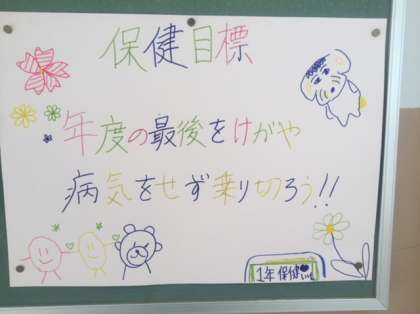 保健目標
年度の最後をけがや
病気をせず乗り切ろう!!
1年 保健